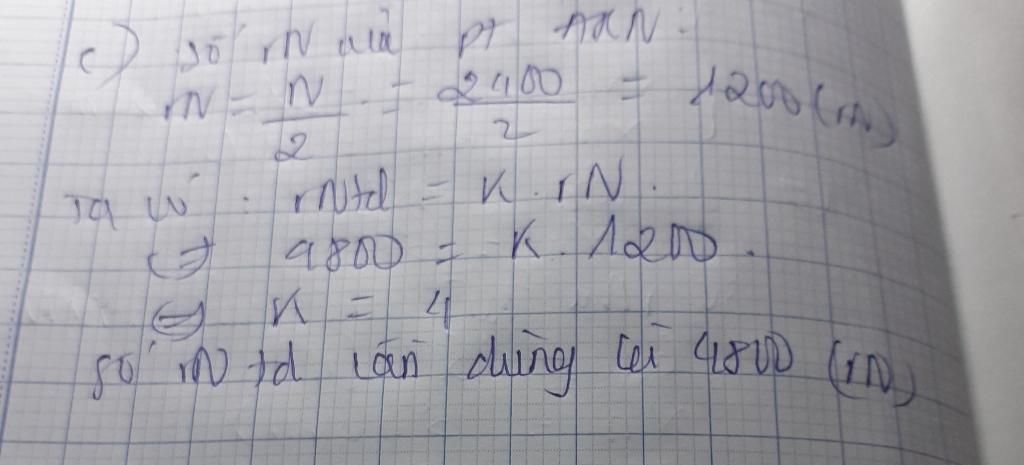 c) số rN của pt ARN:
rN = N/2 = 2400/2 = 1200 (rN)
Ta có: rNtd = K. rN.
⇔ 4800 = K. 1200.
⇔ K = 4
số rN td cần dùng là 4800 (rN)